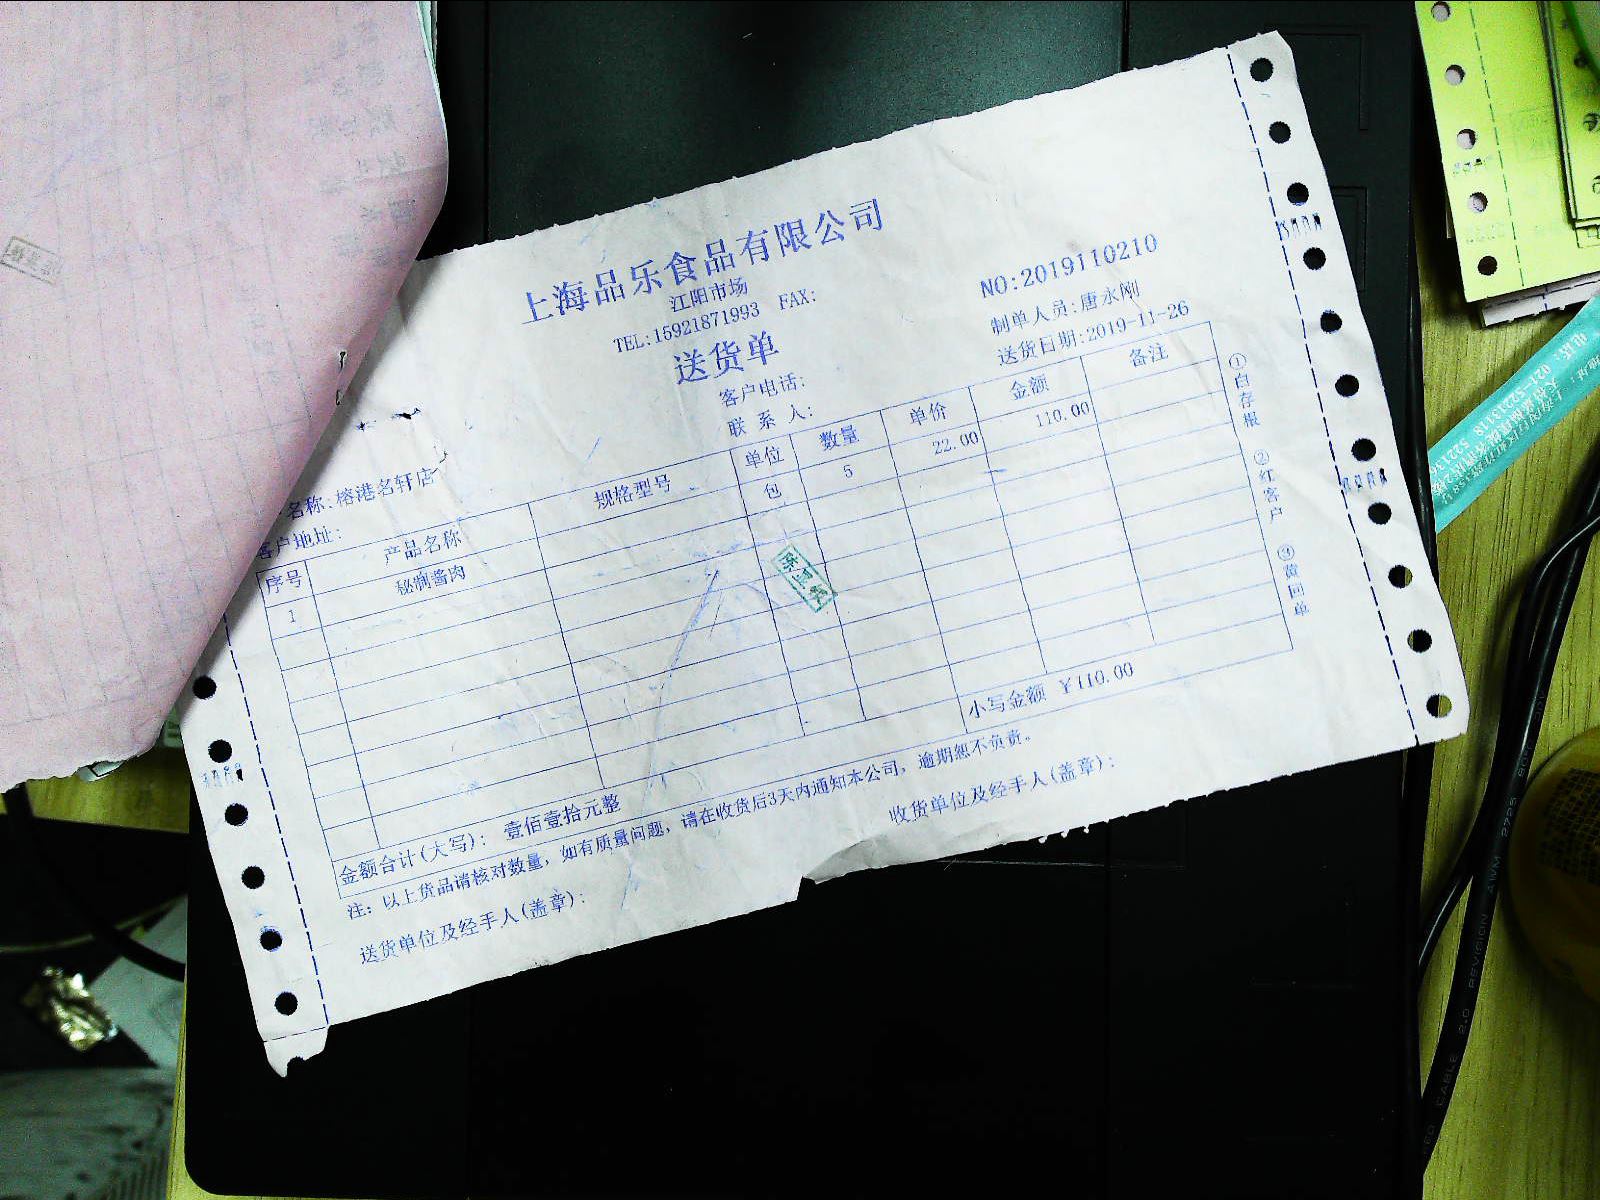 上海品乐食品有限公司
江阳市场
TEL:15921871993 FAX:
NO:2019110210
送货单
制单人员:唐永刚
客户电话:
送货日期:2019-11-26
名称:榕港名轩店
联系人:
客户地址:
序号 产品名称 规格型号 单位 数量 单价 金额 备注
1 秘制酱肉 包 5 22.00 110.00
陈亚
金额合计(大写): 壹佰壹拾元整 小写金额 ¥110.00
注:以上货品请核对数量,如有质量问题,请在收货后3天内通知本公司,逾期恕不负责。
送货单位及经手人(盖章): 收货单位及经手人(盖章):
①白存根 ②红客户 ③黄回单
电话:021-52213118
CABLE 2.0 REVISION AWM 2725